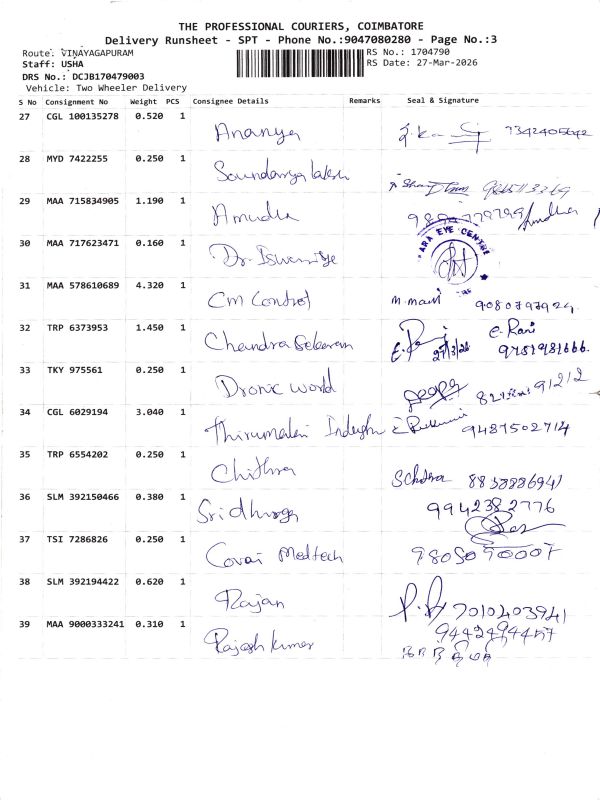 THE PROFESSIONAL COURIERS, COIMBATORE
Delivery Runsheet - SPT - Phone No.:9047080280 - Page No.:3
Route: VINAYAGAPURAM
RS No.: 1704790
Staff: USHA
RS Date: 27-Mar-2026
DRS No.: DCJB170479003
Vehicle: Two Wheeler Delivery
S No Consignment No Weight PCS Consignee Details Remarks Seal & Signature
27 CGL 100135278 0.520 1 Ananya
28 MYD 7422255 0.250 1 Soundarya
29 MAA 715834905 1.190 1 Amudha
30 MAA 717623471 0.160 1 Dr. EYE CENTRE
31 MAA 578610689 4.320 1 Cm Control 9080797924
32 TRP 6373953 1.450 1 Chandra Sekaran E. Rani 27/3/26 9751981666.
33 TKY 975561 0.250 1 Dronix world
34 CGL 6029194 3.040 1 Thirumalai 9487502714
35 TRP 6554202 0.250 1 Chithra
36 SLM 392150466 0.380 1 9942382776
37 TSI 7286826 0.250 1 Covai Medtech
38 SLM 392194422 0.620 1 Rajan 7010403941
39 MAA 9000333241 0.310 1 Rajesh kumar